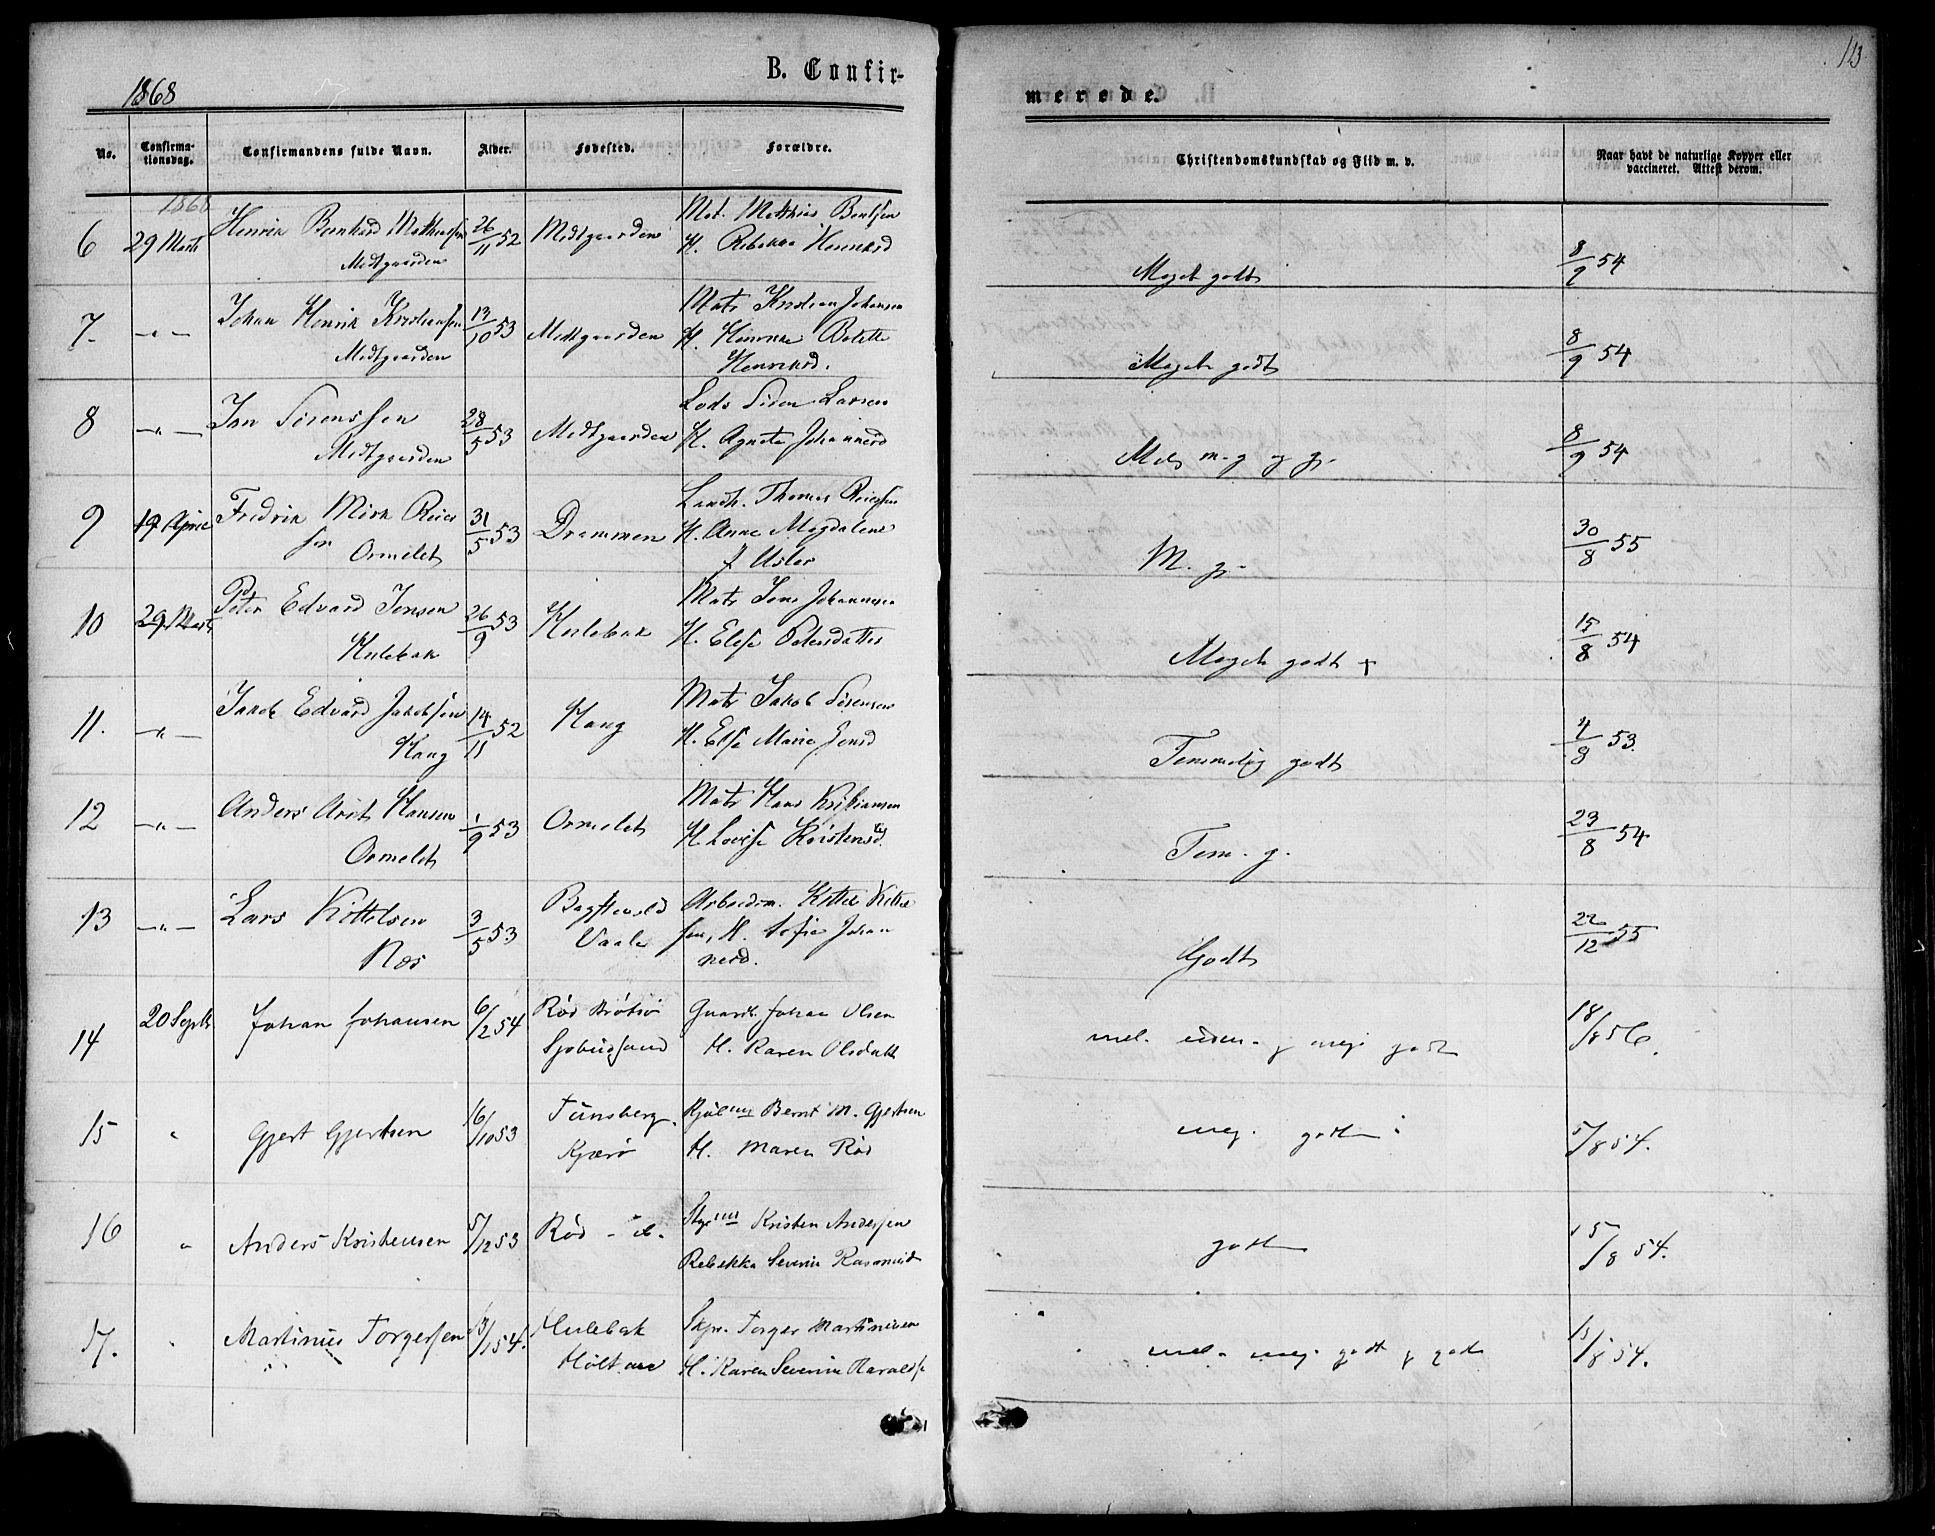 1868
B. Confir-
No. Confirma-tionsdag. Confirmandens fulde Navn. Alder. Fødested. Forældre.
1868
6 29 Marts Henrik Bernhard Mathiassen 26/11 52 Medtgaarden Mat. Mathias Bentsen
Medtgaarden H. Rebekka Henriksd
7. -"- Johan Henrik Kristiansen 13/10 53 Medtgaarden Mats Kristian Johansen
Medtgaarden H. Henrikke Bolette
Henriksd.
8 -"- Jan Sörenssen 28/5 53 Medtgaarden Lods Sören Larsen
Medtgaarden H. Agnete Johannesd
9 19 April Fredrik Mörk Reier 31/5 53 Drammen Landh. Thomas Reiersen
sen Ormelet H. Anne Magdalene
f Usler
10 29 Marts Peter Edvard Jensen 26/9 53 Hulebak Mats Jens Johannesen
Hulebak H. Elese Petersdatter
11. -"- Jakob Edvard Jakobsen 14/11 52 Haug Mats Jakob Sörensen
Haug H. Else Marie Jensd
12 -"- Anders Arnt Hansen 1/9 53 Ormelet Mats Hans Kristiansen
Ormelet H. Lovise Kristensd.
13 -"- Lars Kittelsen 3/5 53 Bagstevold Arbeidsm. Kittel Kittel
Næs Vaale sen, H. Sofie Johan
nesd.
14 20 Septb Johan Johansen 6/2 54 Rød Brøtsø Guardb. Johan Olsen
Sjøbudsund H. Karen Olsdatt
15 " Gjert Gjertsen 16/10 53 Tünsberg. Bernt M. Gjertsen
Kjærø H. Maren Rød
16 " Anders Kristensen 5/12 53 Rød - ib. Kristen Andersen
Rebekka Severine Rasmusd
17. " Martinius Torgersen /1 54. Hulebak Skpr. Torger Martinissen
Holtane H. Karen Severine Haralds
113
merede.
Christendomskundskab og Flid m. v. Naar havt de naturlige Kopper eller
vaccineret. Attest derom.
Meget godt 8/9 54
Meget godt 8/9 54
Mel. m. g og g. 8/9 54
M. g. 30/8 55
Meget godt + 15/8 54
Temmelig godt 4/8 53.
Tem. g. 23/8 54
Godt 22/12 55
mel. godt 18/8 56.
meg. godt 5/8 54.
godt 15/8 54.
mel. meg. godt g godt 15/8 54.